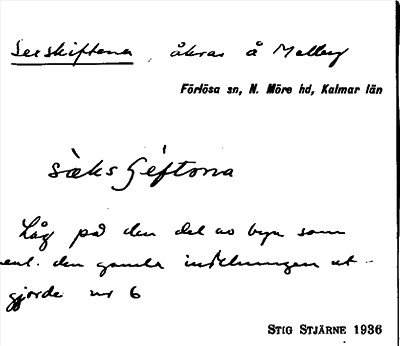 Serskiftena, åkrar å Mellby
Förlösa sn, N. Möre hd, Kalmar län
sæks jéftona
Låg på den del av byn som
enl. den gamla indelningen ut-
gjorde nr 6
STIG STJÄRNE 1936